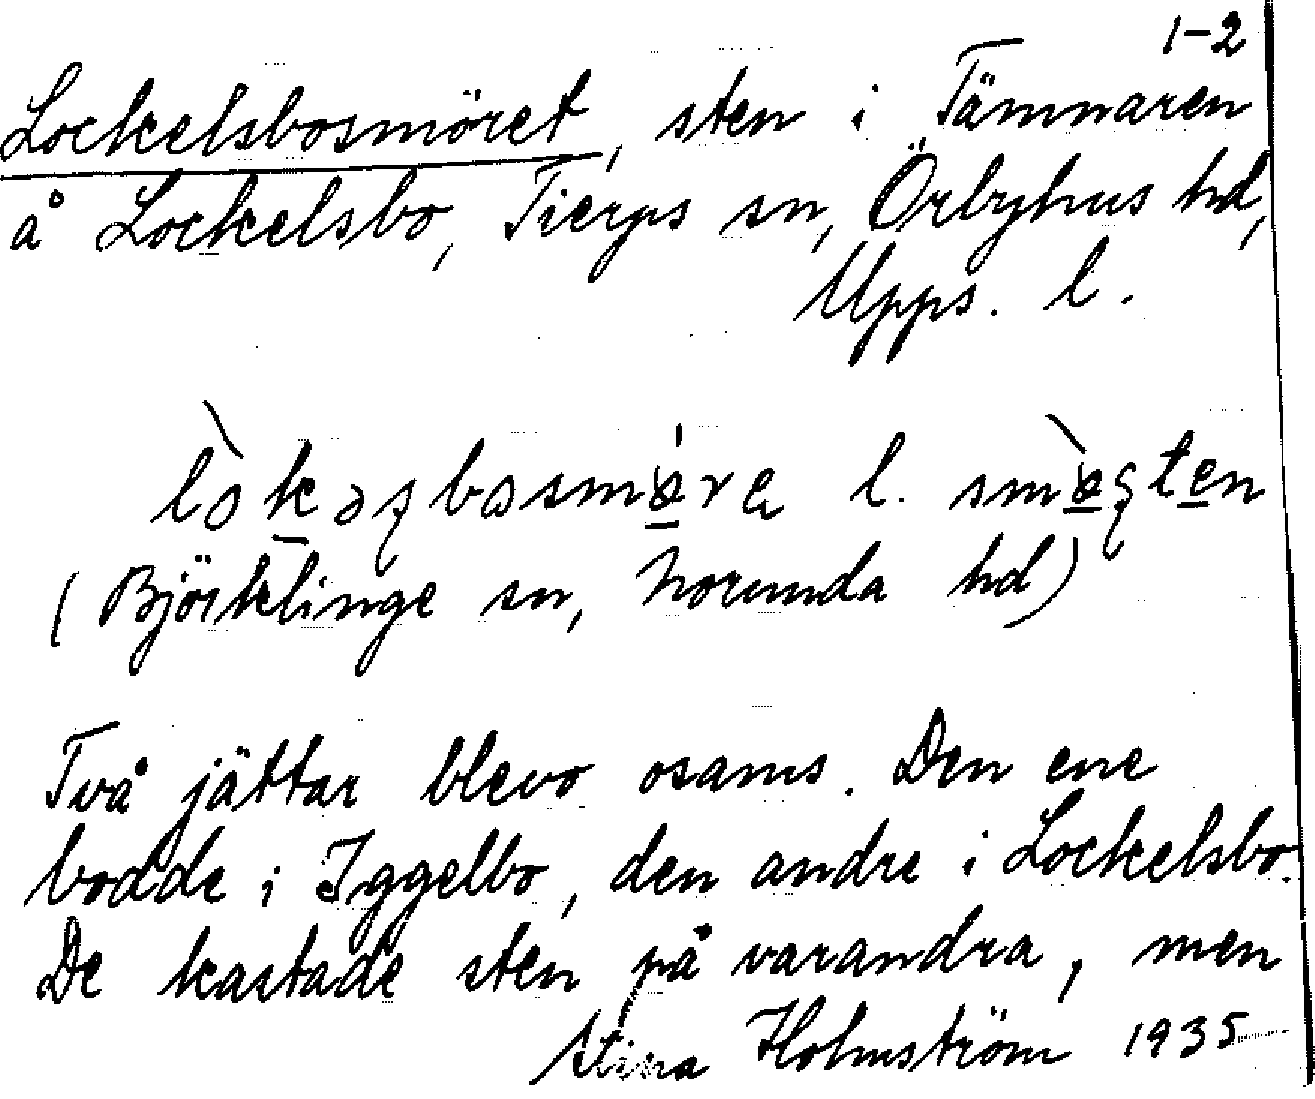 1-2
Lockelsbosmöret, sten i Tämnaren
å Lockelsbo, Tierps sn, Örbyhus hd,
Upps. l.
l.
(Björklinge sn, Norunda hd)
Två jättar blevo osams. Den ene
bodde i Iggelbo, den andre i Lockelsbo.
De kastade sten på varandra, men
Stina Holmström 1935